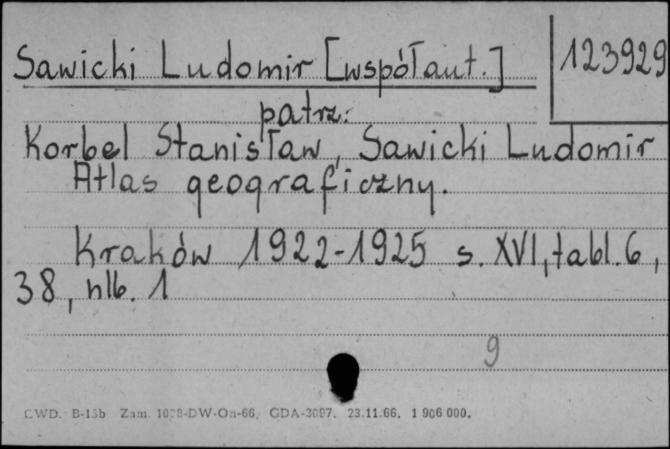 Sawicki Ludomir [współaut.]
123929
patrz:
Korbel Stanisław, Sawicki Ludomir
Atlas geograficzny.
Kraków 1922-1925 s. XVI, tabl. 6,
38, nlb. 1
9
CWD. B-15b Zam. 1028-DW-On-66, GDA-3097. 23.11.66. 1 906 000.